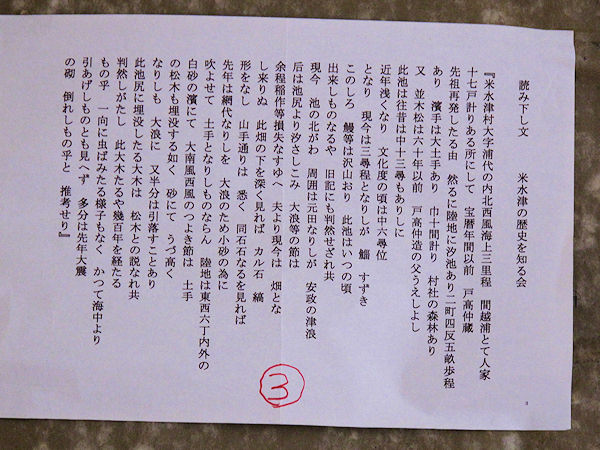 読み下し文　　米水津の歴史を知る会
『米水津村大字浦代の内北西風海上三里程　間越浦とて人家
十七戸計りある所にして　宝暦年間以前　戸高仲蔵
先祖再発したる由　然るに陸地に汐池あり二町四反五畝歩程
あり　濱手は大土手あり　巾十間計り　村社の森林あり
又　並木松は六十年以前　戸高仲造の父うえしよし
此池は往昔は中十三尋もありしに
近年浅くなり　文化度の頃は中六尋位
となり　現今は三尋程となりしが　鯔　すずき
このしろ　鰻等は沢山おり　此池はいつの頃
出来しものなるや　旧記にも判然せざれ共
現今　池の北がわ　周囲は元田なりしが　安政の津浪
后は池尻より汐さしこみ　大浪等の節は
余程稲作等損失なすゆへ　夫より現今は　畑とな
し来りぬ　此畑の下を深く見れば　カル石　縞
形をなし　山手通りは　悉く　同石石なるを見れば
先年は網代なりしを　大浪のため小砂の為に
吹よせて　土手となりしものならん　陸地は東西六丁内外の
白砂の濱にて　大南風西風のつよき節は　土手
の松木も埋没する如く　砂にて　うづ高く
なりしも　大浪に　又半分は引落すことあり
此池尻に埋没したる大木は　松木との説なれ共
判然しがたし　此大木たるや幾百年を経たる
もの乎　一向に虫ばみたる様子もなく　かつて海中より
引あげしものとも見へず　多分は先年大震
の砌　倒れしもの乎と　推考せり』
3
3